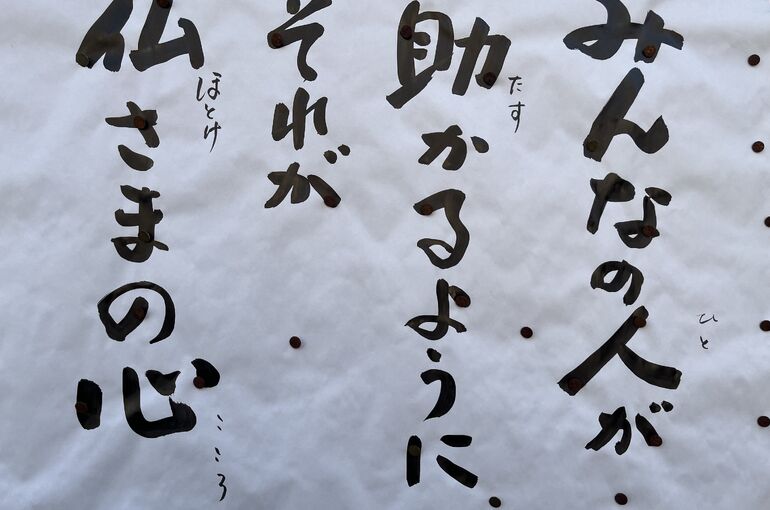 みんなの人が
ひと
助かるように
たす
それが
仏さまの心
ほとけ
こころ